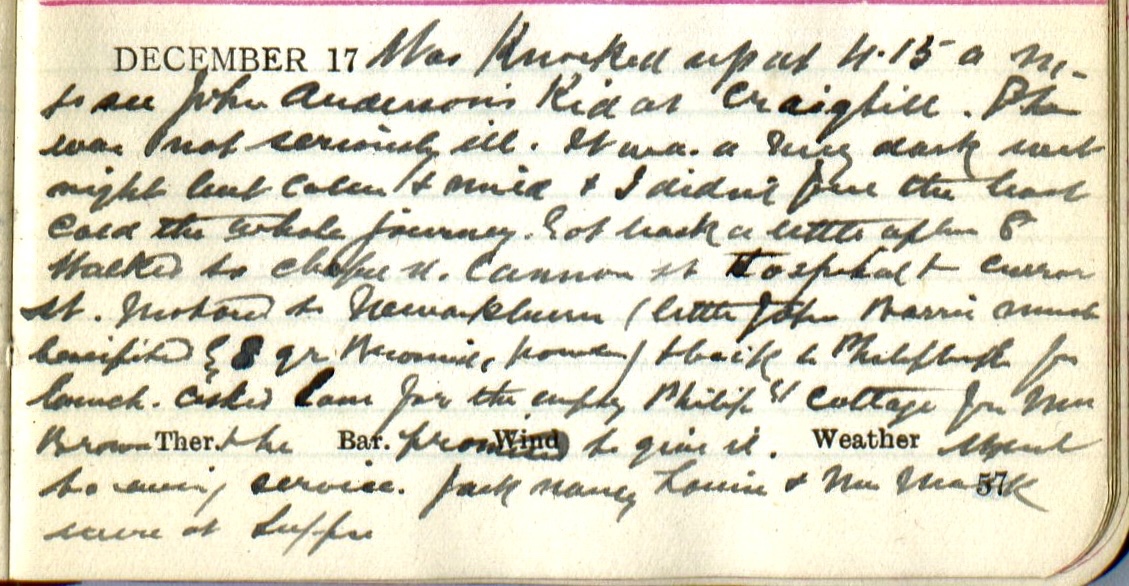 DECEMBER 17 Was Knocked up at 4.15 a m.
to see John Anderson's Kid at Craigbill. She
was not seriously ill. It was a very dark wet
night but calm & mild & I didn't feel the least
cold the whole journey. Got back a little after 8
Walked to chapel st. Cannon st Hospital & Curror
st. Motored to Newarkburn (little John Barrie much
benefited by 3 gr powder) & back to for
lunch. Asked Cam for the empty Philip St Cottage for Mrs
Brown Ther. & he Bar. promised Wind to give it. Weather
to evening service. Jack Nancy Louie & Mrs 57
were at Supper